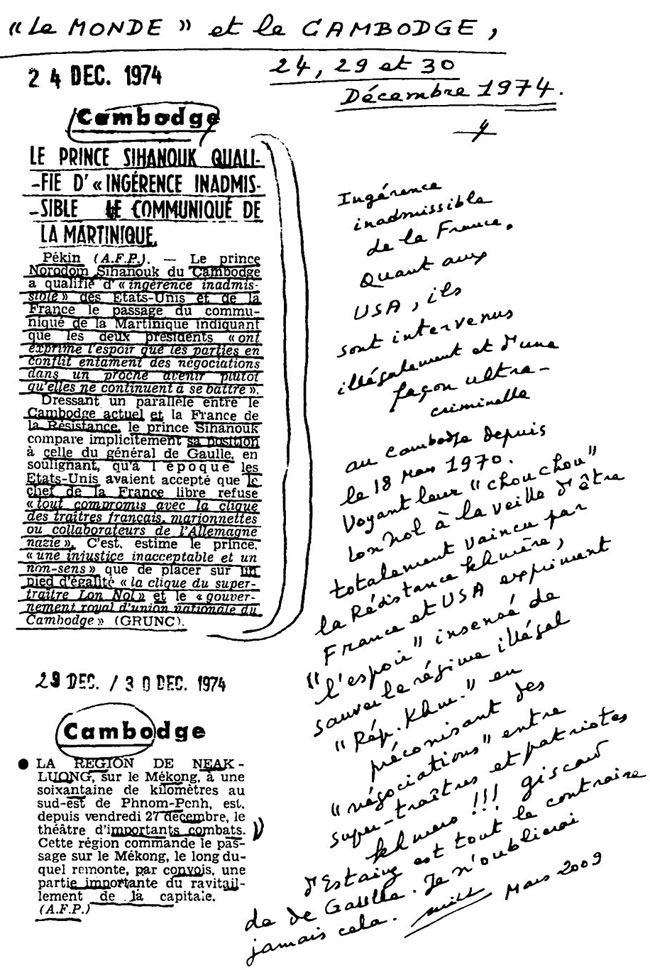 « Le MONDE » et le CAMBODGE,
24, 29 et 30
Décembre 1974.
24 DEC. 1974
Cambodge
LE PRINCE SIHANOUK QUALI-
-FIE D'« INGÉRENCE INADMIS-
-SIBLE LE COMMUNIQUÉ DE
LA MARTINIQUE.
Pékin (A.F.P.). — Le prince
Norodom Sihanouk du Cambodge
a qualifié d'« ingérence inadmis-
sible » des Etats-Unis et de la
France le passage du commu-
niqué de la Martinique indiquant
que les deux présidents « ont
exprimé l'espoir que les parties en
conflit entament des négociations
dans un proche avenir plutôt
qu'elles ne continuent à se battre ».
Dressant un parallèle entre le
Cambodge actuel et la France de
la Résistance, le prince Sihanouk
compare implicitement sa position
à celle du général de Gaulle, en
soulignant, qu'à l'époque les
Etats-Unis avaient accepté que le
chef de la France libre refuse
« tout compromis avec la clique
des traîtres français, marionnettes
ou collaborateurs de l'Allemagne
nazie ». C'est, estime le prince,
« une injustice inacceptable et un
non-sens » que de placer sur un
pied d'égalité « la clique du super-
traître Lon Nol » et le « gouver-
nement royal d'union nationale du
Cambodge » (GRUNC).
29 DEC. / 30 DEC. 1974
Cambodge
● LA REGION DE NEAK-
LUONG, sur le Mékong, à une
soixantaine de kilomètres au
sud-est de Phnom-Penh, est,
depuis vendredi 27 décembre, le
théâtre d'importants combats.
Cette région commande le pas-
sage sur le Mékong, le long du-
quel remonte, par convois, une
partie importante du ravitail-
lement de la capitale.
(A.F.P.)
Ingérence
inadmissible
de la France.
Quant aux
USA, ils
sont intervenus
illégalement et d'une
façon ultra-
criminelle
au Cambodge depuis
le 18 Mars 1970.
Voyant leur "chouchou"
Lon Nol à la veille d'être
totalement vaincu par
la Résistance khmère,
France et USA expriment
"l'espoir" insensé de
sauver le régime illégal
"Rép. Khm." en
préconisant des
"négociations" entre
super-traîtres et patriotes
khmers !!! Giscard
d'Estaing est tout le contraire
de de Gaulle. Je n'oublierai
jamais cela.
Mars 2009